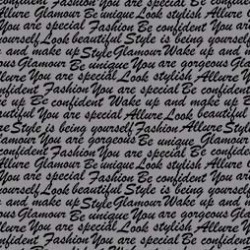 You are special Allure You are
gorgeous Be unique Look stylish
Be confident Fashion You are special
yourself Look beautiful Style is being
and make up Style Glamour Wake up and
Glamour Be unique You are gorgeous
Allure You are special Look stylish Allure
confident Fashion You are special Be
up Be confident Wake up and make up
beautiful You are special Allure Look
Style is being yourself Fashion Allure Style
You are gorgeous Be unique Glamour
Allure Look stylish Allure You are special
You are special Fashion Be confident
yourself Look beautiful Style is being
and make up Style Glamour Wake up
Glamour Be unique You are gorgeous
Allure You are special Look stylish Allure
Be confident Fashion You are special